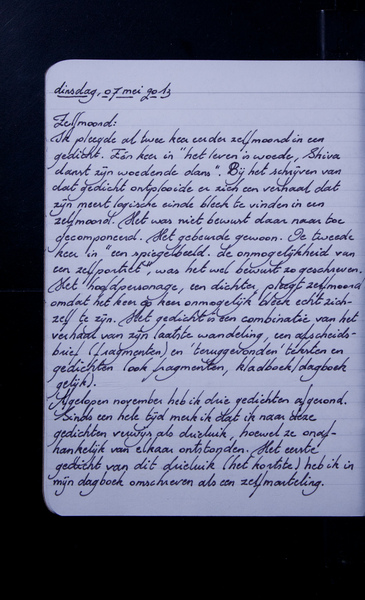 dinsdag, 07 mei 2013
Zelfmoord:
Ik pleegde al twee keer eerder zelfmoord in een
gedicht. Eén keer in "het leven is woede, Shiva
danst zijn woedende dans". Bij het schrijven van
dat gedicht ontplooide er zich een verhaal dat
zijn meest logische einde bleek te vinden in een
zelfmoord. Het was niet bewust daar naar toe
gecomponeerd. Het gebeurde gewoon. De tweede
keer in "een spiegelbeeld. de onmogelijkheid van
een zelfportret", was het wel bewust zo geschreven.
Het hoofdpersonage, een dichter, pleegt zelfmoord
omdat het keer op keer onmogelijk bleek echt zich-
zelf te zijn. Het gedicht is een combinatie van het
verhaal van zijn laatste wandeling, een afscheids-
brief (fragmenten) en 'teruggevonden' teksten en
gedichten (ook fragmenten, kladboek/dagboek
gelijk).
Afgelopen november heb ik drie gedichten afgerond.
Sinds een hele tijd merk ik dat ik naar deze
gedichten verwijs als drieluik, hoewel ze onaf-
hankelijk van elkaar ontstonden. Het eerste
gedicht van dit drieluik (het kortste) heb ik in
mijn dagboek omschreven als een zelfmarteling.